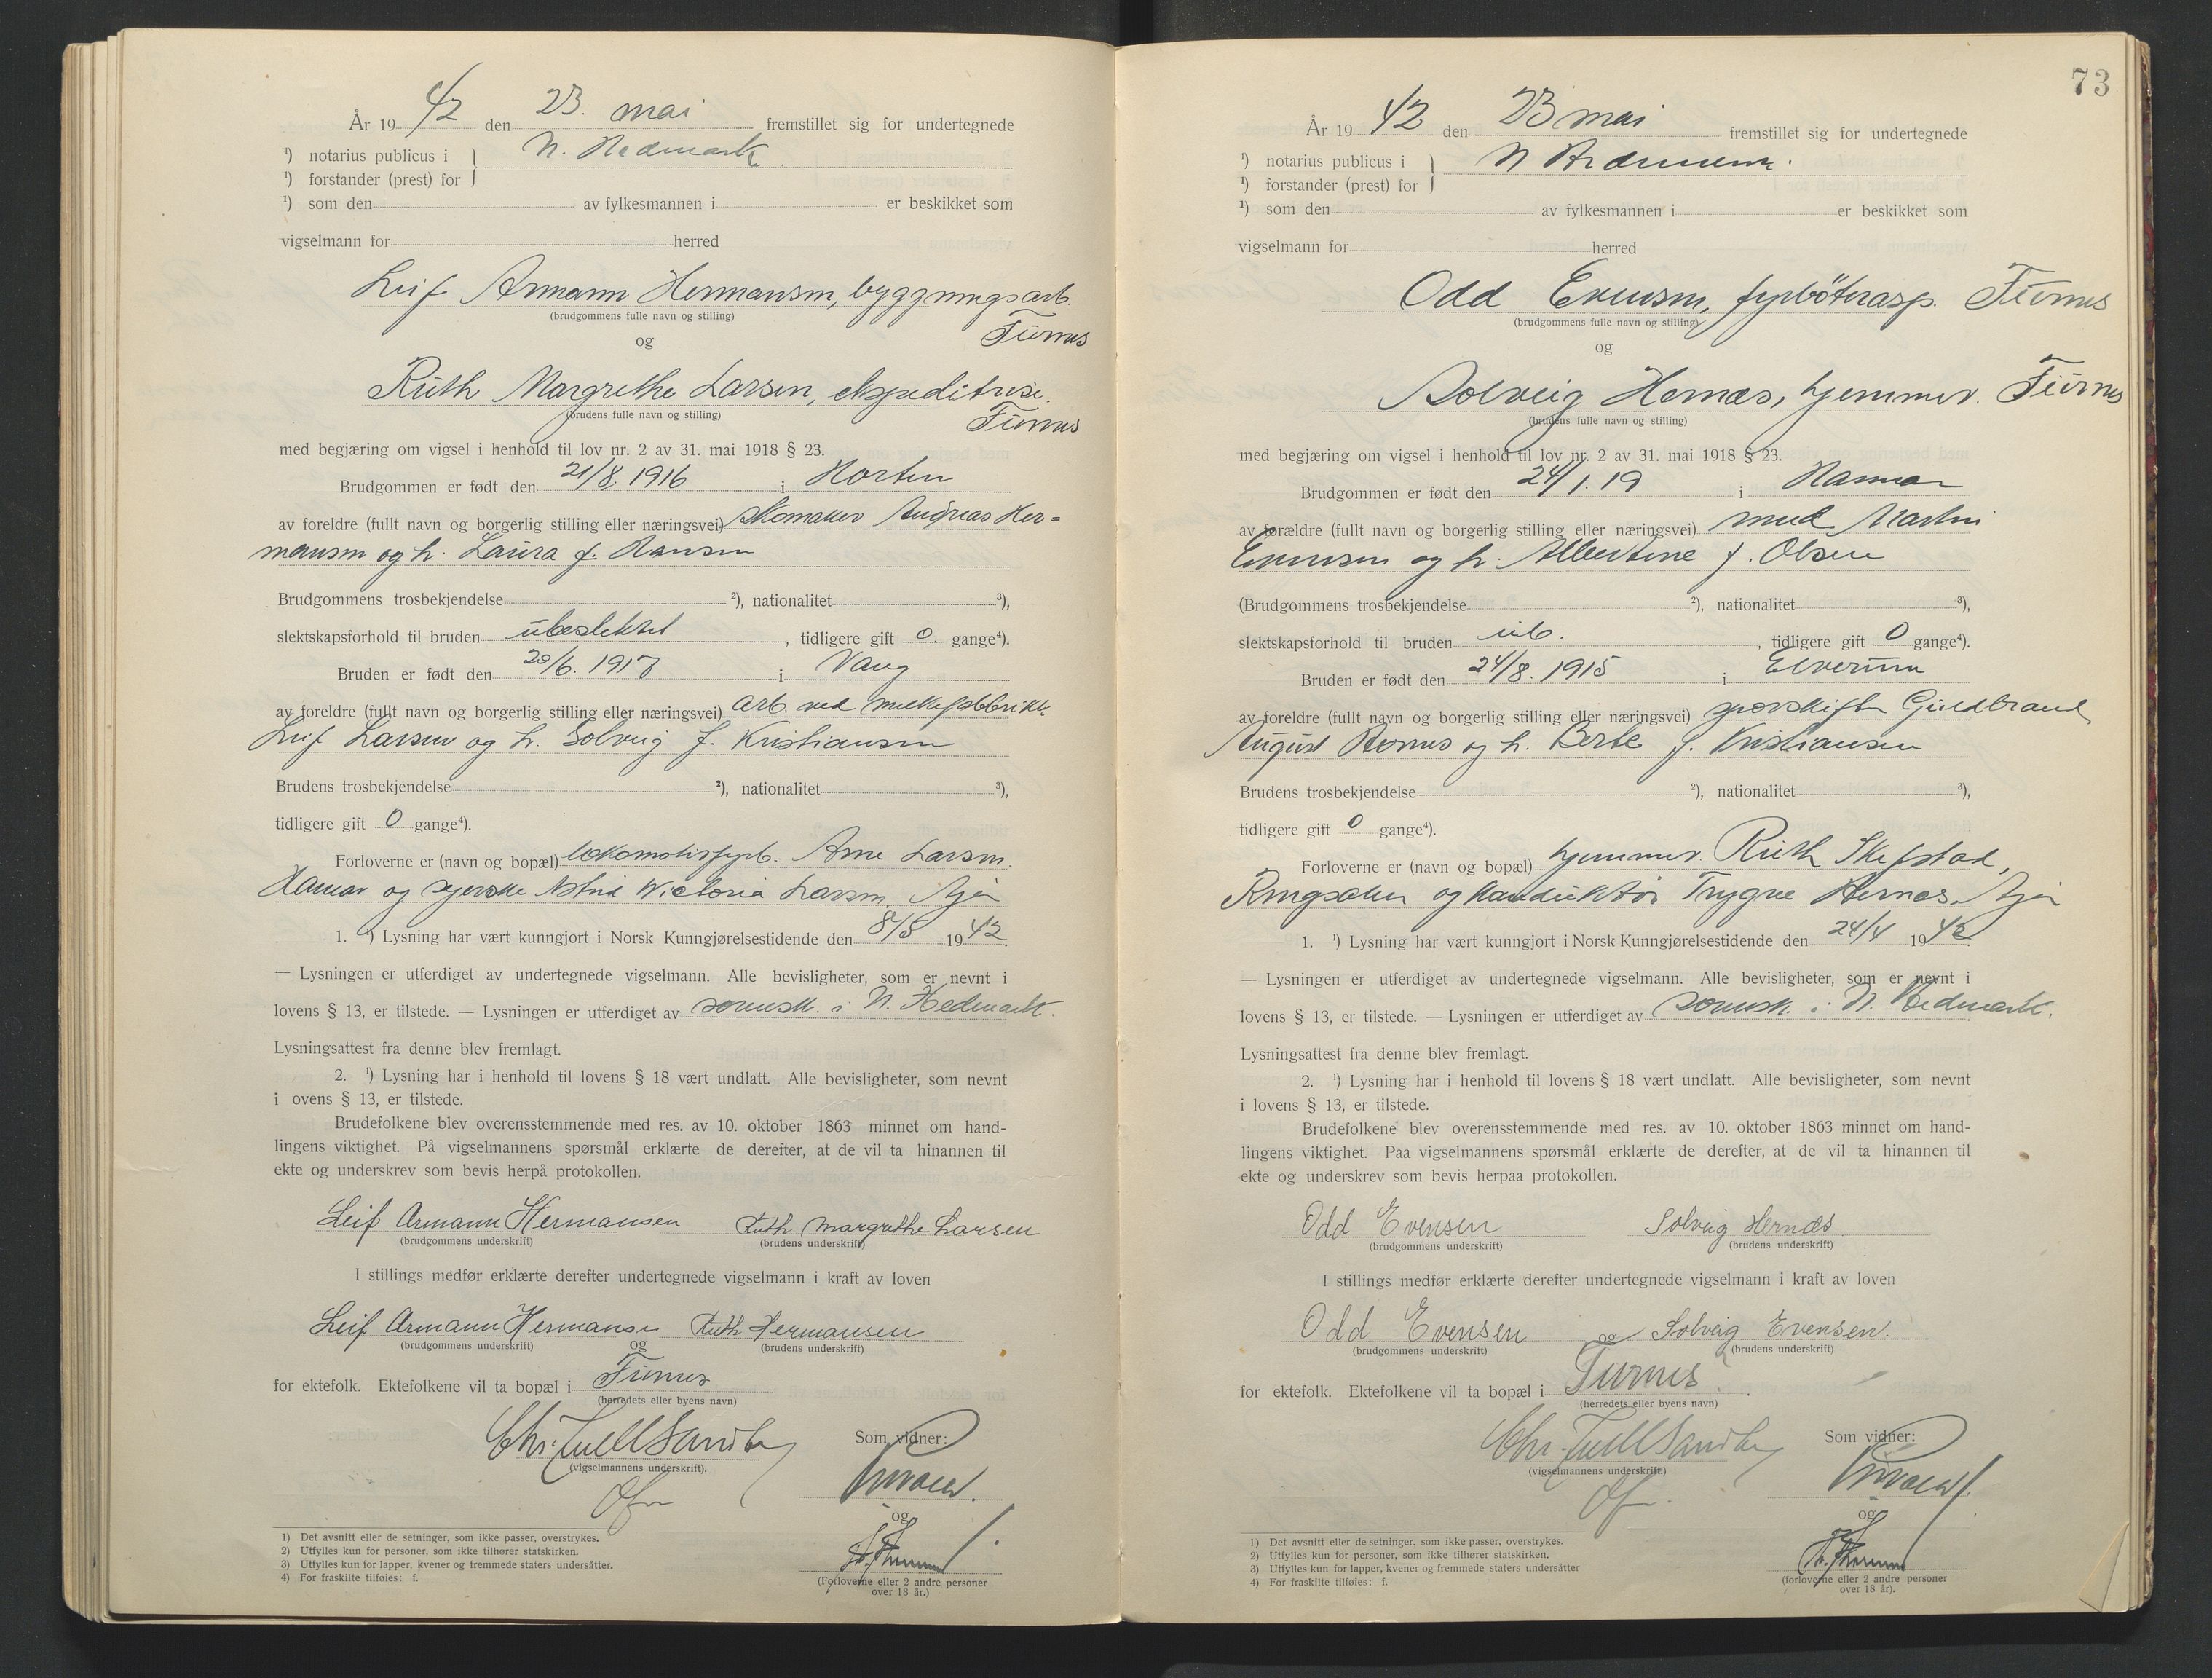 År 1942 den 23. mai fremstillet sig for undertegnede
¹) notarius publicus i N. Hedmark
¹) forstander (prest) for
¹) som den av fylkesmannen i er beskikket som
vigselmann for herred
Leif Armann Hermansen, byggningsarb.
(brudgommens fulle navn og stilling)
Furnes
og
Ruth Margrethe Larsen, ekspeditrise.
(brudens fulle navn og stilling)
Furnes
med begjæring om vigsel i henhold til lov nr. 2 av 31. mai 1918 § 23.
Brudgommen er født den 21/8. 1916 i Horten
av foreldre (fullt navn og borgerlig stilling eller næringsvei) skomaker Andreas Her=
mansen og h. Laura f. Hansen
Brudgommens trosbekjendelse ²), nationalitet ³),
slektskapsforhold til bruden ubeslektet, tidligere gift 0. gange⁴).
Bruden er født den 20/6. 1917 i Vang
av foreldre (fullt navn og borgerlig stilling eller næringsvei) arb. ved melkefabrikk.
Leif Larsen og h. Solveig f. Kristiansen
Brudens trosbekjendelse ²), nationalitet ³),
tidligere gift 0 gange⁴).
Forloverne er (navn og bopæl) lokomotivfyrb. Arne Larsen.
Hamar og syerske Astrid Victoria Larsen,
1. ¹) Lysning har vært kunngjort i Norsk Kunngjørelsestidende den 8/5 1942.
— Lysningen er utferdiget av undertegnede vigselmann. Alle bevisligheter, som er nevnt i
lovens § 13, er tilstede. — Lysningen er utferdiget av sorensk. i N. Hedmark.
Lysningsattest fra denne blev fremlagt.
2. ¹) Lysning har i henhold til lovens § 18 vært undlatt. Alle bevisligheter, som nevnt
i ovens § 13, er tilstede.
Brudefolkene blev overensstemmende med res. av 10. oktober 1863 minnet om hand-
lingens viktighet. På vigselmannens spørsmål erklærte de derefter, at de vil ta hinannen til
ekte og underskrev som bevis herpå protokollen.
Leif Armann Hermansen Ruth Margrethe Larsen
(brudgommens underskrift) (brudens underskrift)
I stillings medfør erklærte derefter undertegnede vigselmann i kraft av loven
Leif Armann Hermansen Ruth Hermansen
(brudgommens underskrift) og (brudens underskrift)
for ektefolk. Ektefolkene vil ta bopæl i Furnes
(herredets eller byens navn)
Som vidner:
(vigselmannens underskrift).
og
1) Det avsnitt eller de setninger, som ikke passer, overstrykes.
2) Utfylles kun for personer, som ikke tilhører statskirken.
3) Utfylles kun for lapper, kvener og fremmede staters undersåtter.
4) For fraskilte tilføies: f.
(Forloverne eller 2 andre personer
over 18 år.)
73
År 1942 den 23 mai fremstillet sig for undertegnede
¹) notarius publicus i N Hedmark.
¹) forstander (prest) for
¹) som den av fylkesmannen i er beskikket som
vigselmann for herred
Odd Evensen, fyrböterasp. Furnes
(brudgommens fulle navn og stilling)
og
Solveig Hernæs, hjemmev. Furnes
(brudens fulle navn og stilling)
med begjæring om vigsel i henhold til lov nr. 2 av 31. mai 1918 § 23.
Brudgommen er født den 24/1. 19 i Hamar
av forældre (fullt navn og borgerlig stilling eller næringsvei) Martin
Evensen og h. Albertine f. Olsen
(Brudgommens trosbekjendelse ²), nationalitet ³),
slektskapsforhold til bruden ub., tidligere gift 0 gange⁴).
Bruden er født den 24/8. 1915 i Elverum
av foreldre (fullt navn og borgerlig stilling eller næringsvei) sporskifter Guldbrand
August Hernes og h. Berte f. Kristiansen
Brudens trosbekjendelse ²), nationalitet ³),
tidligere gift 0 gange⁴).
Forloverne er (navn og bopæl) hjemmev. Ruth Skefstad,
Ringsaker og konduktør Trygve Hernes,
1. ¹) Lysning har vært kunngjort i Norsk Kunngjørelsestidende den 24/4 1942.
— Lysningen er utferdiget av undertegnede vigselmann. Alle bevisligheter, som er nevnt i
lovens § 13, er tilstede. — Lysningen er utferdiget av sorensk. i N. Hedmark.
Lysningsattest fra denne blev fremlagt.
2. ¹) Lysning har i henhold til lovens § 18 vært undlatt. Alle bevisligheter, som nevnt
i lovens § 13, er tilstede.
Brudefolkene blev overensstemmende med res. av 10. oktober 1863 minnet om hand-
lingens viktighet. Paa vigselmannens spørsmål erklærte de derefter, at de vil ta hinannen til
ekte og underskrev som bevis herpaa protokollen.
Odd Evensen Solveig Hernæs
(brudgommens underskrift) (brudens underskrift)
I stillings medfør erklærte derefter undertegnede vigselmann i kraft av loven
Odd Evensen og Solveig Evensen.
(brudgommens underskrift) (brudens underskrift)
for ektefolk. Ektefolkene vil ta bopæl i Furnes.
(herredets eller byens navn)
Som vidner:
(vigselmannens underskrift.)
og
1) Det avsnitt eller de setninger, som ikke passer, overstrykes.
2) Utfylles kun for personer, som ikke tilhører statskirken.
3) Utfylles kun for lapper, kvener og fremmede staters undersåtter
4) For fraskilte tilføies: f.
(forloverne eller 2 andre personer
over 18 år).